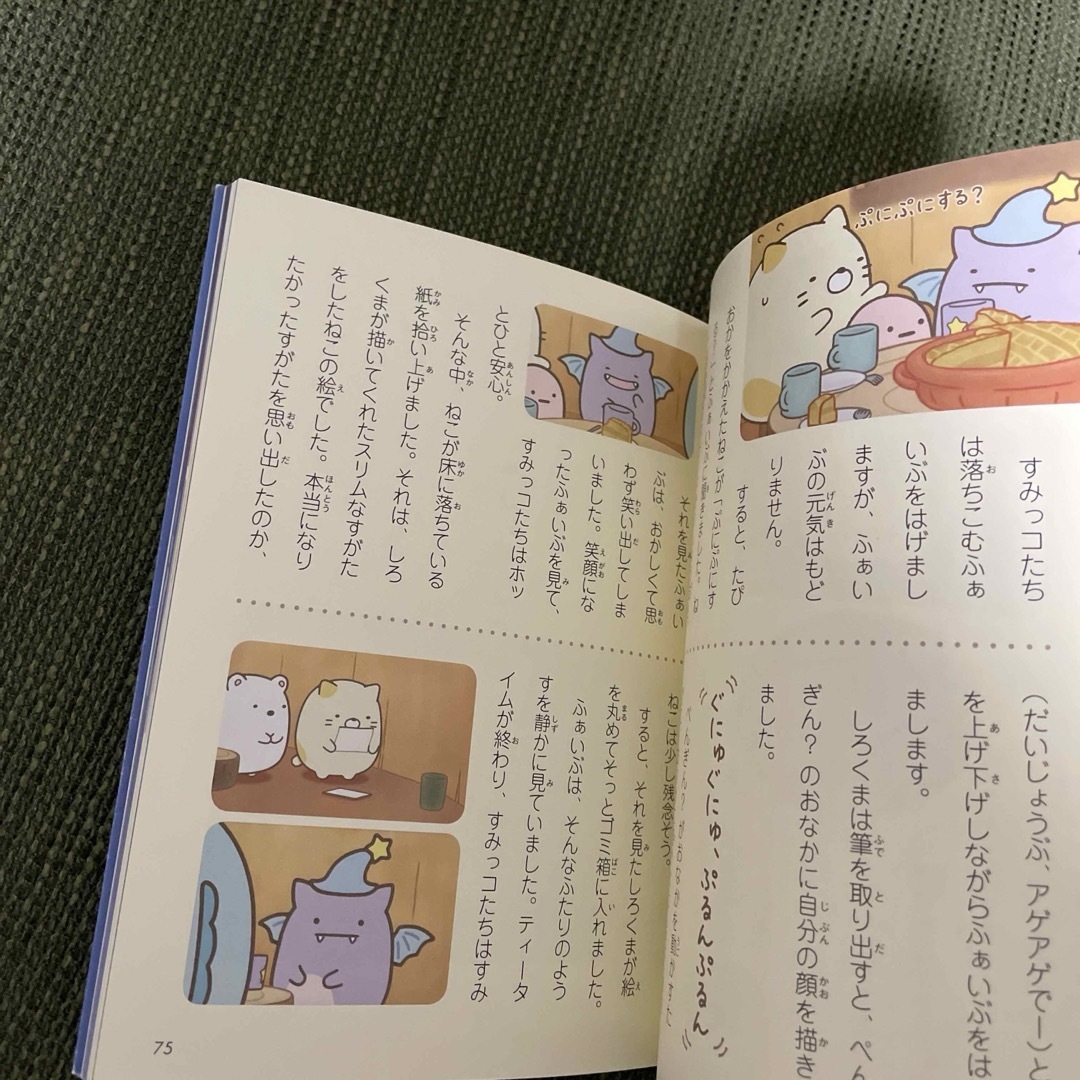 ぷにぷにする?
すみっコたち
は落ちこむふぁ
いぶをはげまし
ますが、ふぁい
ぶの元気はもど
りません。
すると、たぴ
おかをかかえたねこが「ぷにぷにす
(だいじょうぶ、アゲアゲでー)と
を上げ下げしながらふぁいぶをは
まします。
しろくまは筆を取り出すと、ぺん
ぎん?のおなかに自分の顔を描き
ました。
ぐにゅぐにゅ、ぷるんぷるん
それを見たふぁい
ぶは、おかしくて思
わず笑い出してしま
いました。笑顔にな
ったふぁいぶを見て、
すみっコたちはホッ
とひと安心。
そんな中、ねこが床に落ちている
紙を拾い上げました。それは、しろ
くまが描いてくれたスリムなすがた
をしたねこの絵でした。本当になり
たかったすがたを思い出したのか、
ねこは少し残念そう。
すると、それを見たしろくまが絵
を丸めてそっとゴミ箱に入れました。
ふぁいぶは、そんなふたりのよう
すを静かに見ていました。ティータ
イムが終わり、すみっコたちはすみ
75